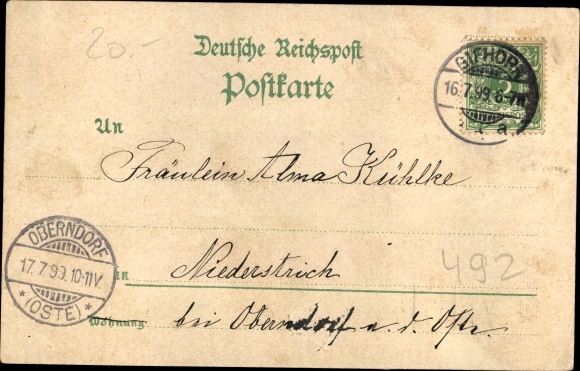 20.-
Deutsche Reichspost
Postkarte
GIFHORN
16.7.99.6-7N.
a
5
An
Fräulein Alma Kühlke
OBERNDORF
17.7.99.10-11V.
*(OSTE)*
in Niederstrich
492
Wohnung bei Oberndorf a. d. Oste.